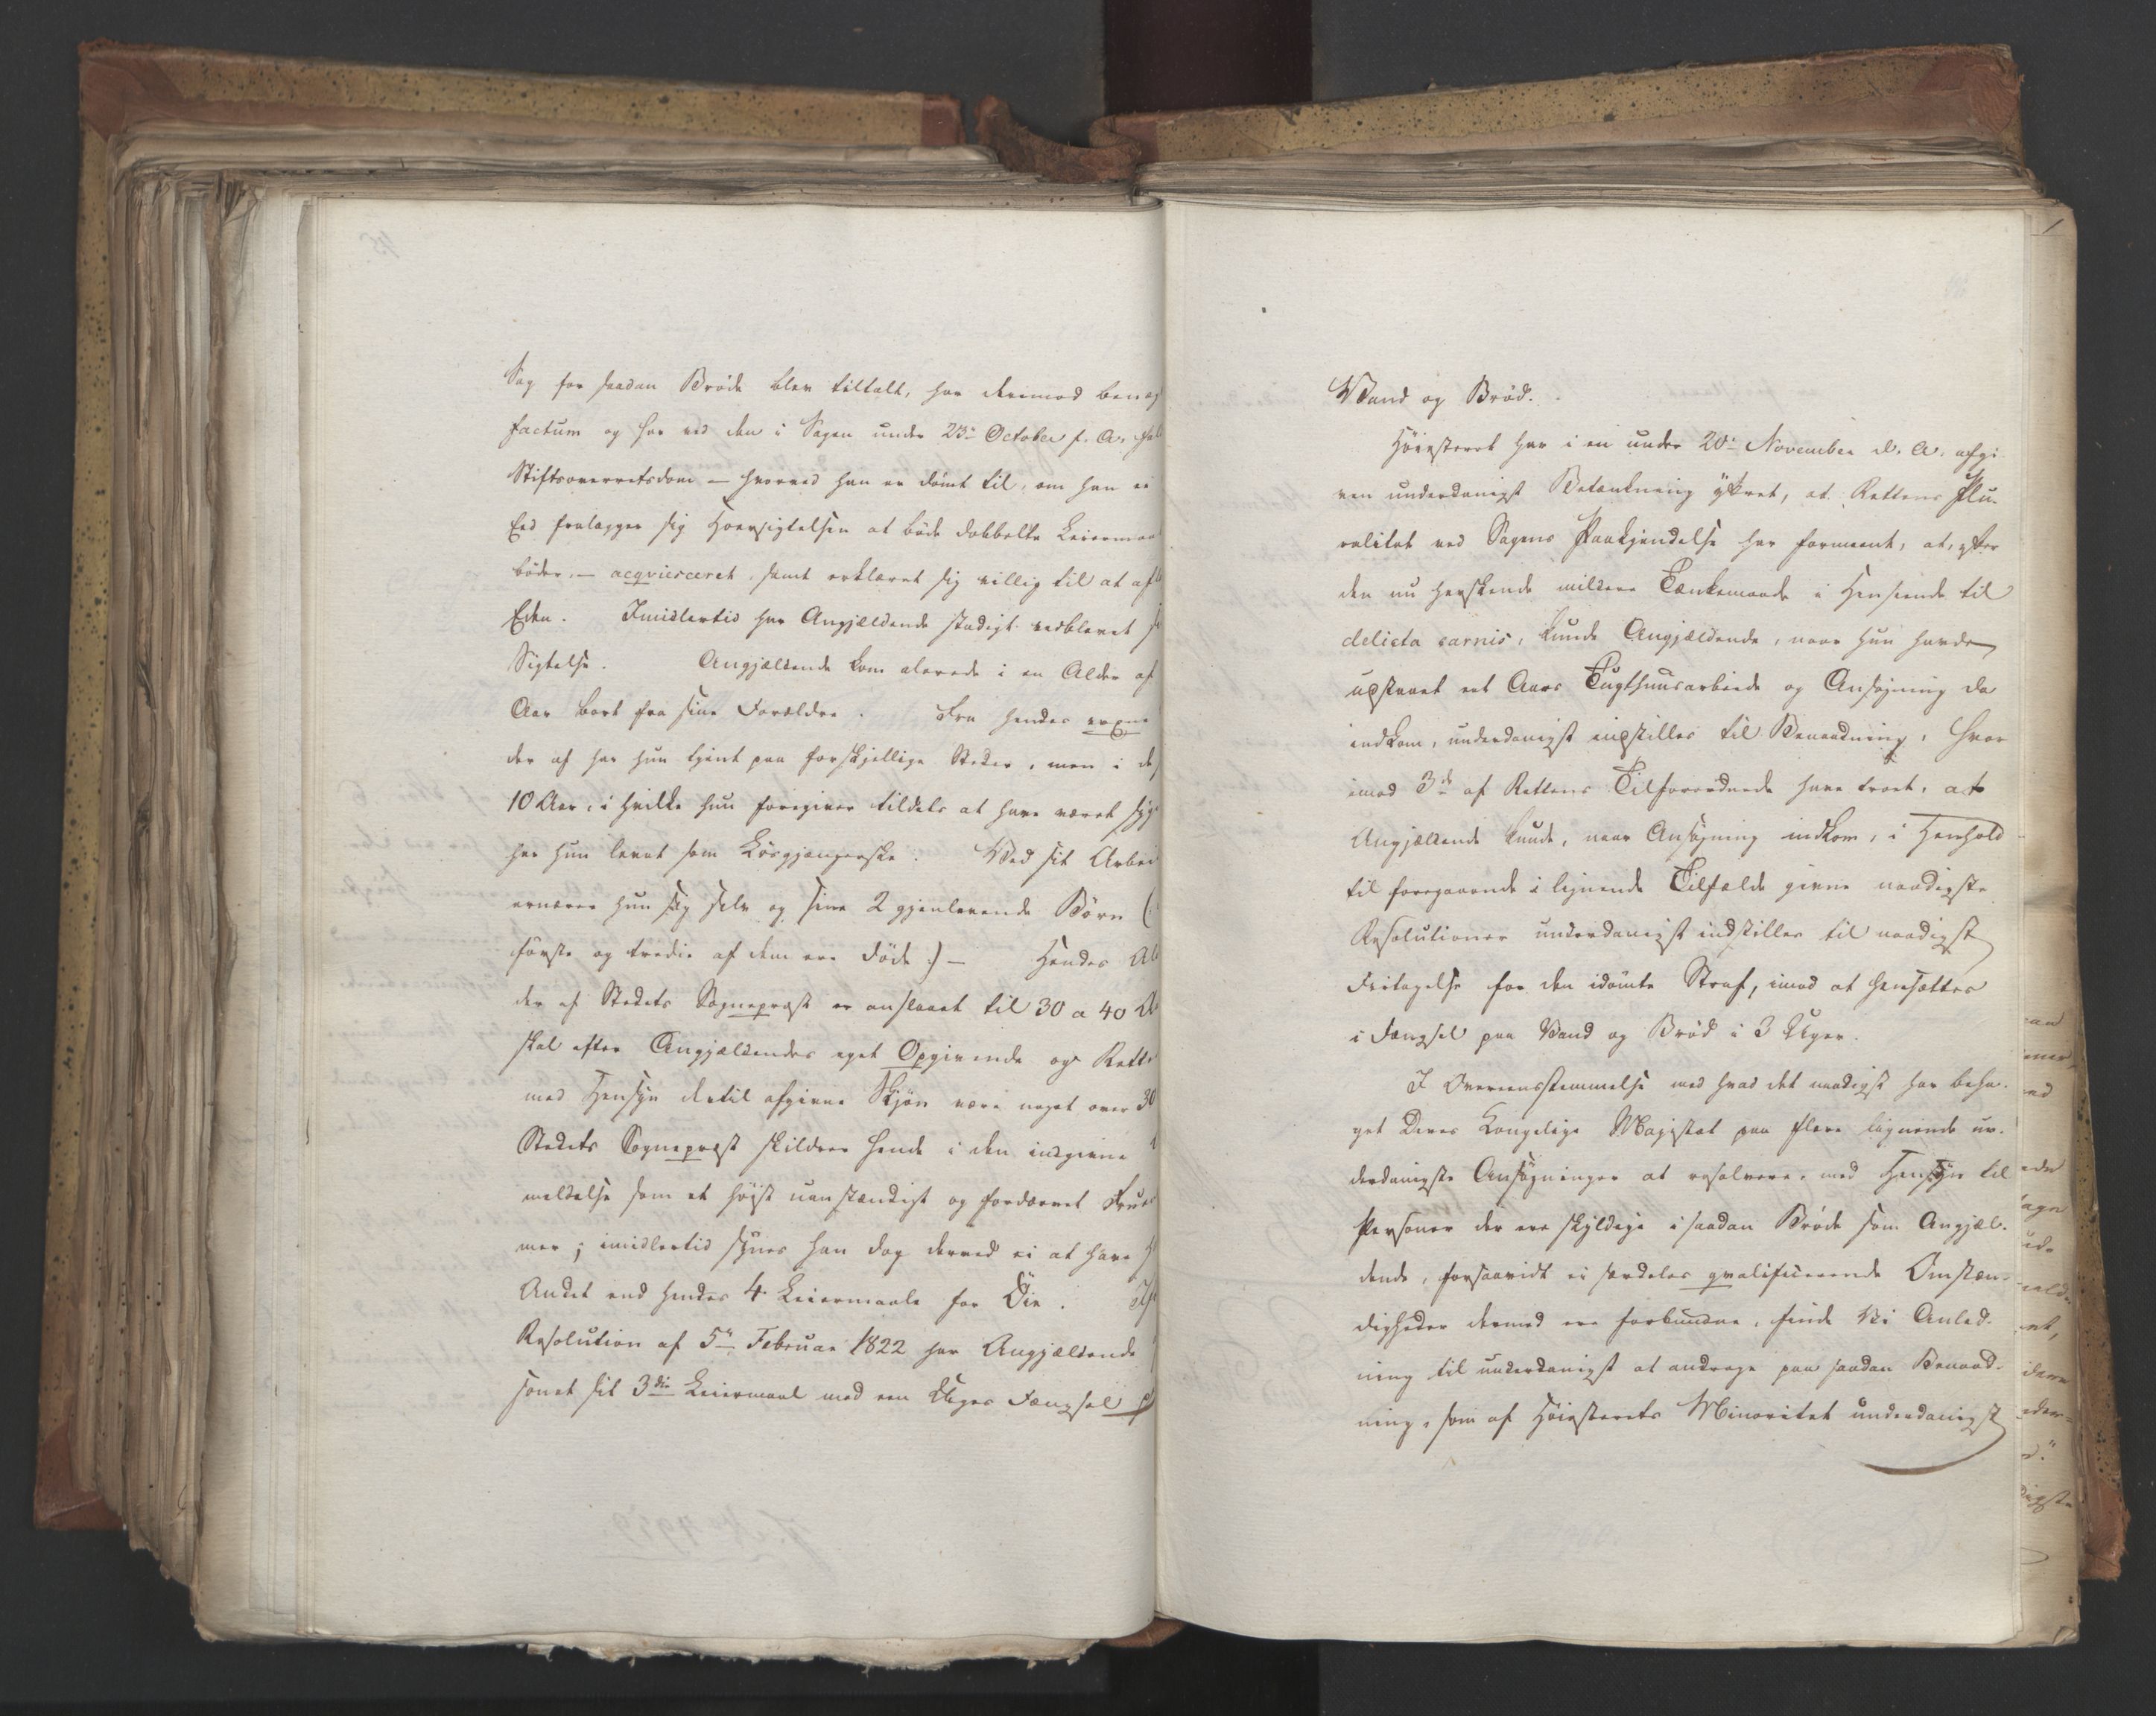 Sag for saadan Brøde blev tiltalt, har derimod benæg
factum og har ved den i Sagen under 23de October f. A.
Stiftsoverretsdom – hvorved han er dømt til, om han ei
Eed fralægger sig Hoersigtelsen at bøde dobbelte Leiermaals
bøder, – acqviesceret, samt erklæret sig villig til at af
Eden. Imidlertid har Angjældende stadigt vedblevet
Sigtelse. Angjældende kom alerede i en Alder af
Aar bort fra sine Forældre. Fra hendes voxne
der af har hun tjent paa forskjellige Steder, men i de
10 Aar, i hvilke hun foregiver tildels at have været syg
har hun levet som Løsgjængerske. Ved sit Arbei
ernærer hun sig selv og sine 2 gjenlevende Børn (
første og tredie af dem ere døde) – Hendes Al
der af Stedets Sognepræst er anslaaet til 30 a 40
skal efter Angjældendes eget Opgivende og Rett
med Hensyn dertil afgivne Skjøn være noget over 30
Stedets Sognepræst skildrer hende i den indgivne
meldelse som et høist uanstændigt og fordærvet Fruen
mer; imidlertid synes han dog derved ei at have
Andet end hendes 4 Leiermaale for Øie.
Resolution af 5te Februar 1822 har Angjældende
sonet sit 3die Leiermaal med een Uges Fængsel p
Vand og Brød.
Høiesteret har i en under 20de November d. A. afgi
ven underdanigst Betænkning yttret, at Rettens Plu-
ralitet ved Sagens Paakjendelse har formeent, at, efter
den nu herskende mildere Tænkemaade i Henseende til
delicta carnis, kunde Angjældende, naar hun havde
udstaaet eet Aars Tugthuusarbeide og Ansøgning da
indkom, underdanigst indstilles til Benaadning, hvor
imod 3de af Rettens Tilforordnede have troet, at
Angjældende kunde, naar Ansøgning indkom, i Henhold
til foregaaende i lignende Tilfælde givne naadigste
Resolutioner underdanigst indstilles til naadigst
Fritagelse for den idømte Straf, imod at hensættes
i Fængsel paa Vand og Brød i 3 Uger.
I Overeensstemmelse med hvad det naadigst har beha-
get Deres Kongelige Majestæt paa flere lignende un-
derdanigste Ansøgninger at resolvere, med Hensyn til
Personer der ere skyldige i saadan Brøde som Angjæl-
dende, forsaavidt ei særdeles qvalificerende Omstæn-
digheder dermed ere forbundne, finde Vi Anled-
ning til underdanigst at andrage paa saadan Benaad-
ning, som af Høiesterets Minoritet underdanigst